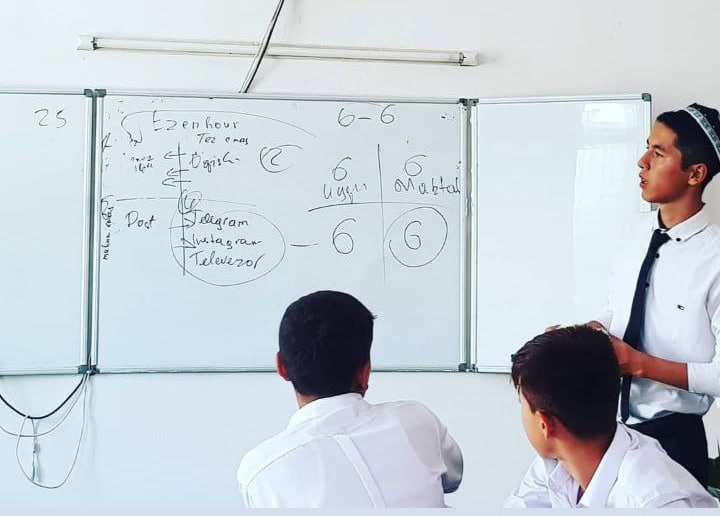 25
Ezenhour
Tez emas
2
Post
Telegram
Instagram
Televezor
6-6
6 6
Uyqu Maktab
- 6 6